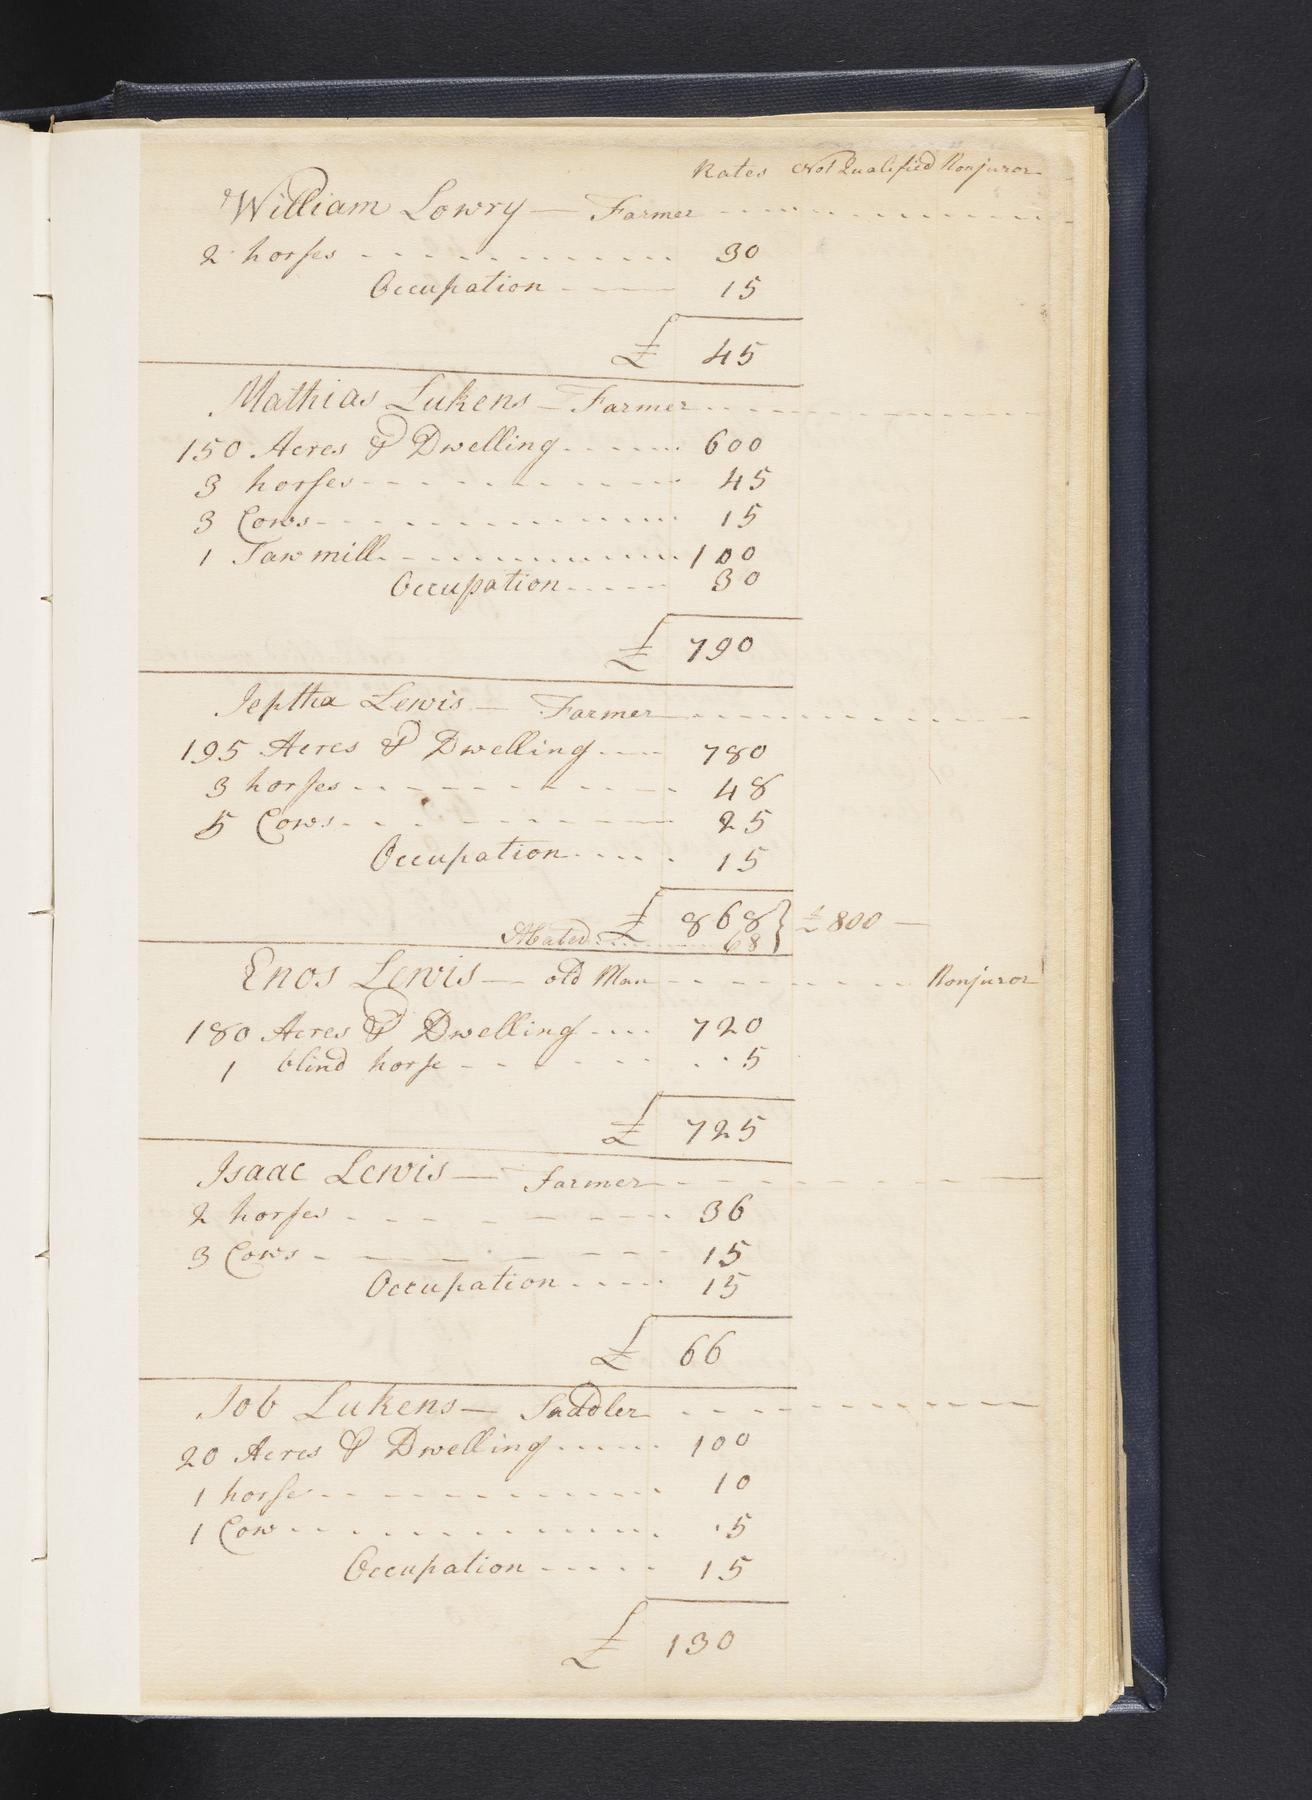 Rates Not Qualified Nonjuror
William Lowry — Farmer
2 horses 30
Occupation 15
£ 45
Mathias Lukens — Farmer
150 Acres & Dwelling 600
3 horses 45
3 Cows 15
1 Saw mill 100
Occupation 30
£ 790
Jeptha Lewis — Farmer
195 Acres & Dwelling 780
3 horses 48
5 Cows 25
Occupation 15
£ 868 } £ 800 —
Abated 68
Enos Lewis — old Man Nonjuror
180 Acres & Dwelling 720
1 blind horse 5
£ 725
Isaac Lewis — Farmer
2 horses 36
3 Cows 15
Occupation 15
£ 66
Job Lukens — Saddler
20 Acres & Dwelling 100
1 horse 10
1 Cow 5
Occupation 15
£ 130